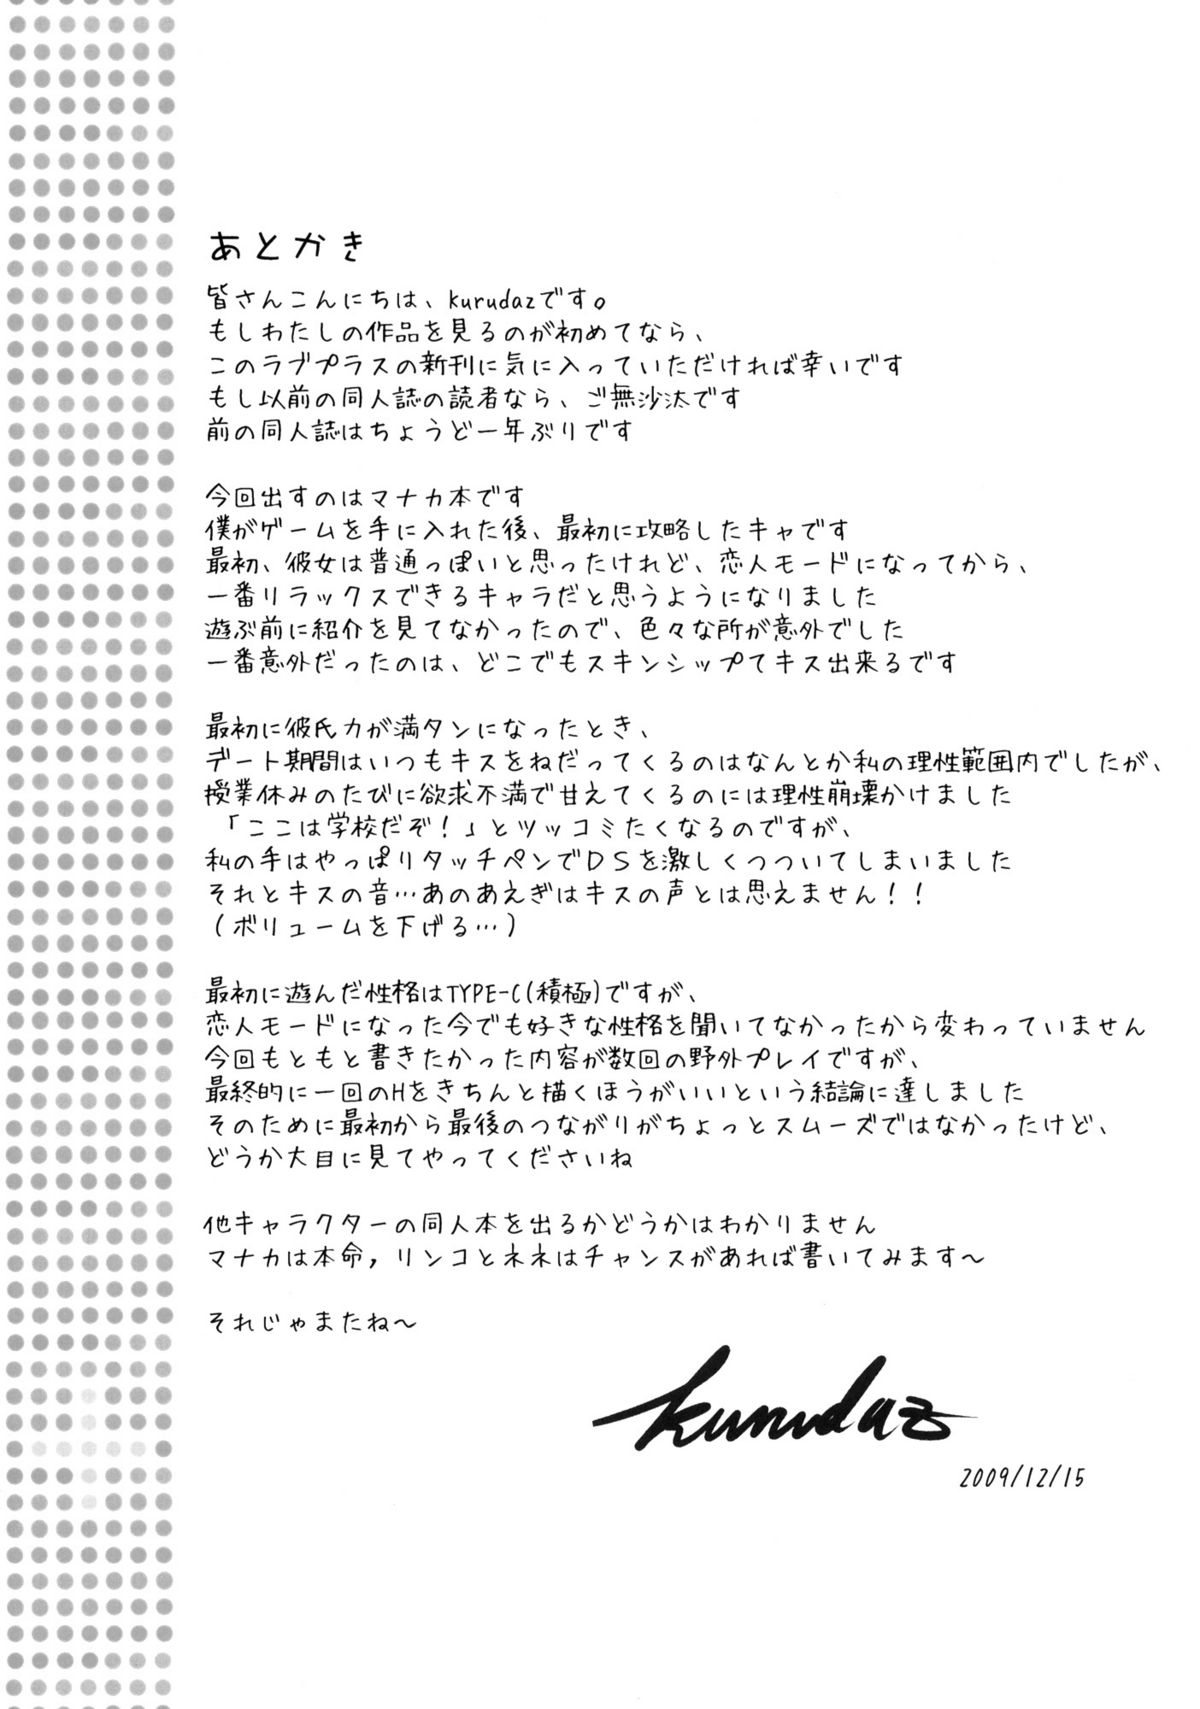 あとかき
皆さんこんにちは、kurudazです。
もしわたしの作品を見るのが初めてなら、
このラブプラスの新刊に気に入っていただければ幸いです
もし以前の同人誌の読者なら、ご無沙汰です
前の同人誌はちょうど一年ぶりです
今回出すのはマナカ本です
僕がゲームを手に入れた後、最初に攻略したキャです
最初、彼女は普通っぽいと思ったけれど、恋人モードになってから、
一番リラックスできるキャラだと思うようになりました
遊ぶ前に紹介を見てなかったので、色々な所が意外でした
一番意外だったのは、どこでもスキンシップてキス出来るです
最初に彼氏力が満タンになったとき、
デート期間はいつもキスをねだってくるのはなんとか私の理性範囲内でしたが、
授業休みのたびに欲求不満で甘えてくるのには理性崩壊かけました
「ここは学校だぞ!」とツッコミたくなるのですが、
私の手はやっぱりタッチペンでDSを激しくつついてしまいました
それとキスの音…あのあえぎはキスの声とは思えません!!
(ボリュームを下げる…)
最初に遊んだ性格はTYPE-C(積極)ですが、
恋人モードになった今でも好きな性格を聞いてなかったから変わっていません
今回もともと書きたかった内容が数回の野外プレイですが、
最終的に一回のHをきちんと描くほうがいいという結論に達しました
そのために最初から最後のつながりがちょっとスムーズではなかったけど、
どうか大目に見てやってくださいね
他キャラクターの同人本を出るかどうかはわかりません
マナカは本命,リンコとネネはチャンスがあれば書いてみます～
それじゃまたね～
kurudaz
2009/12/15